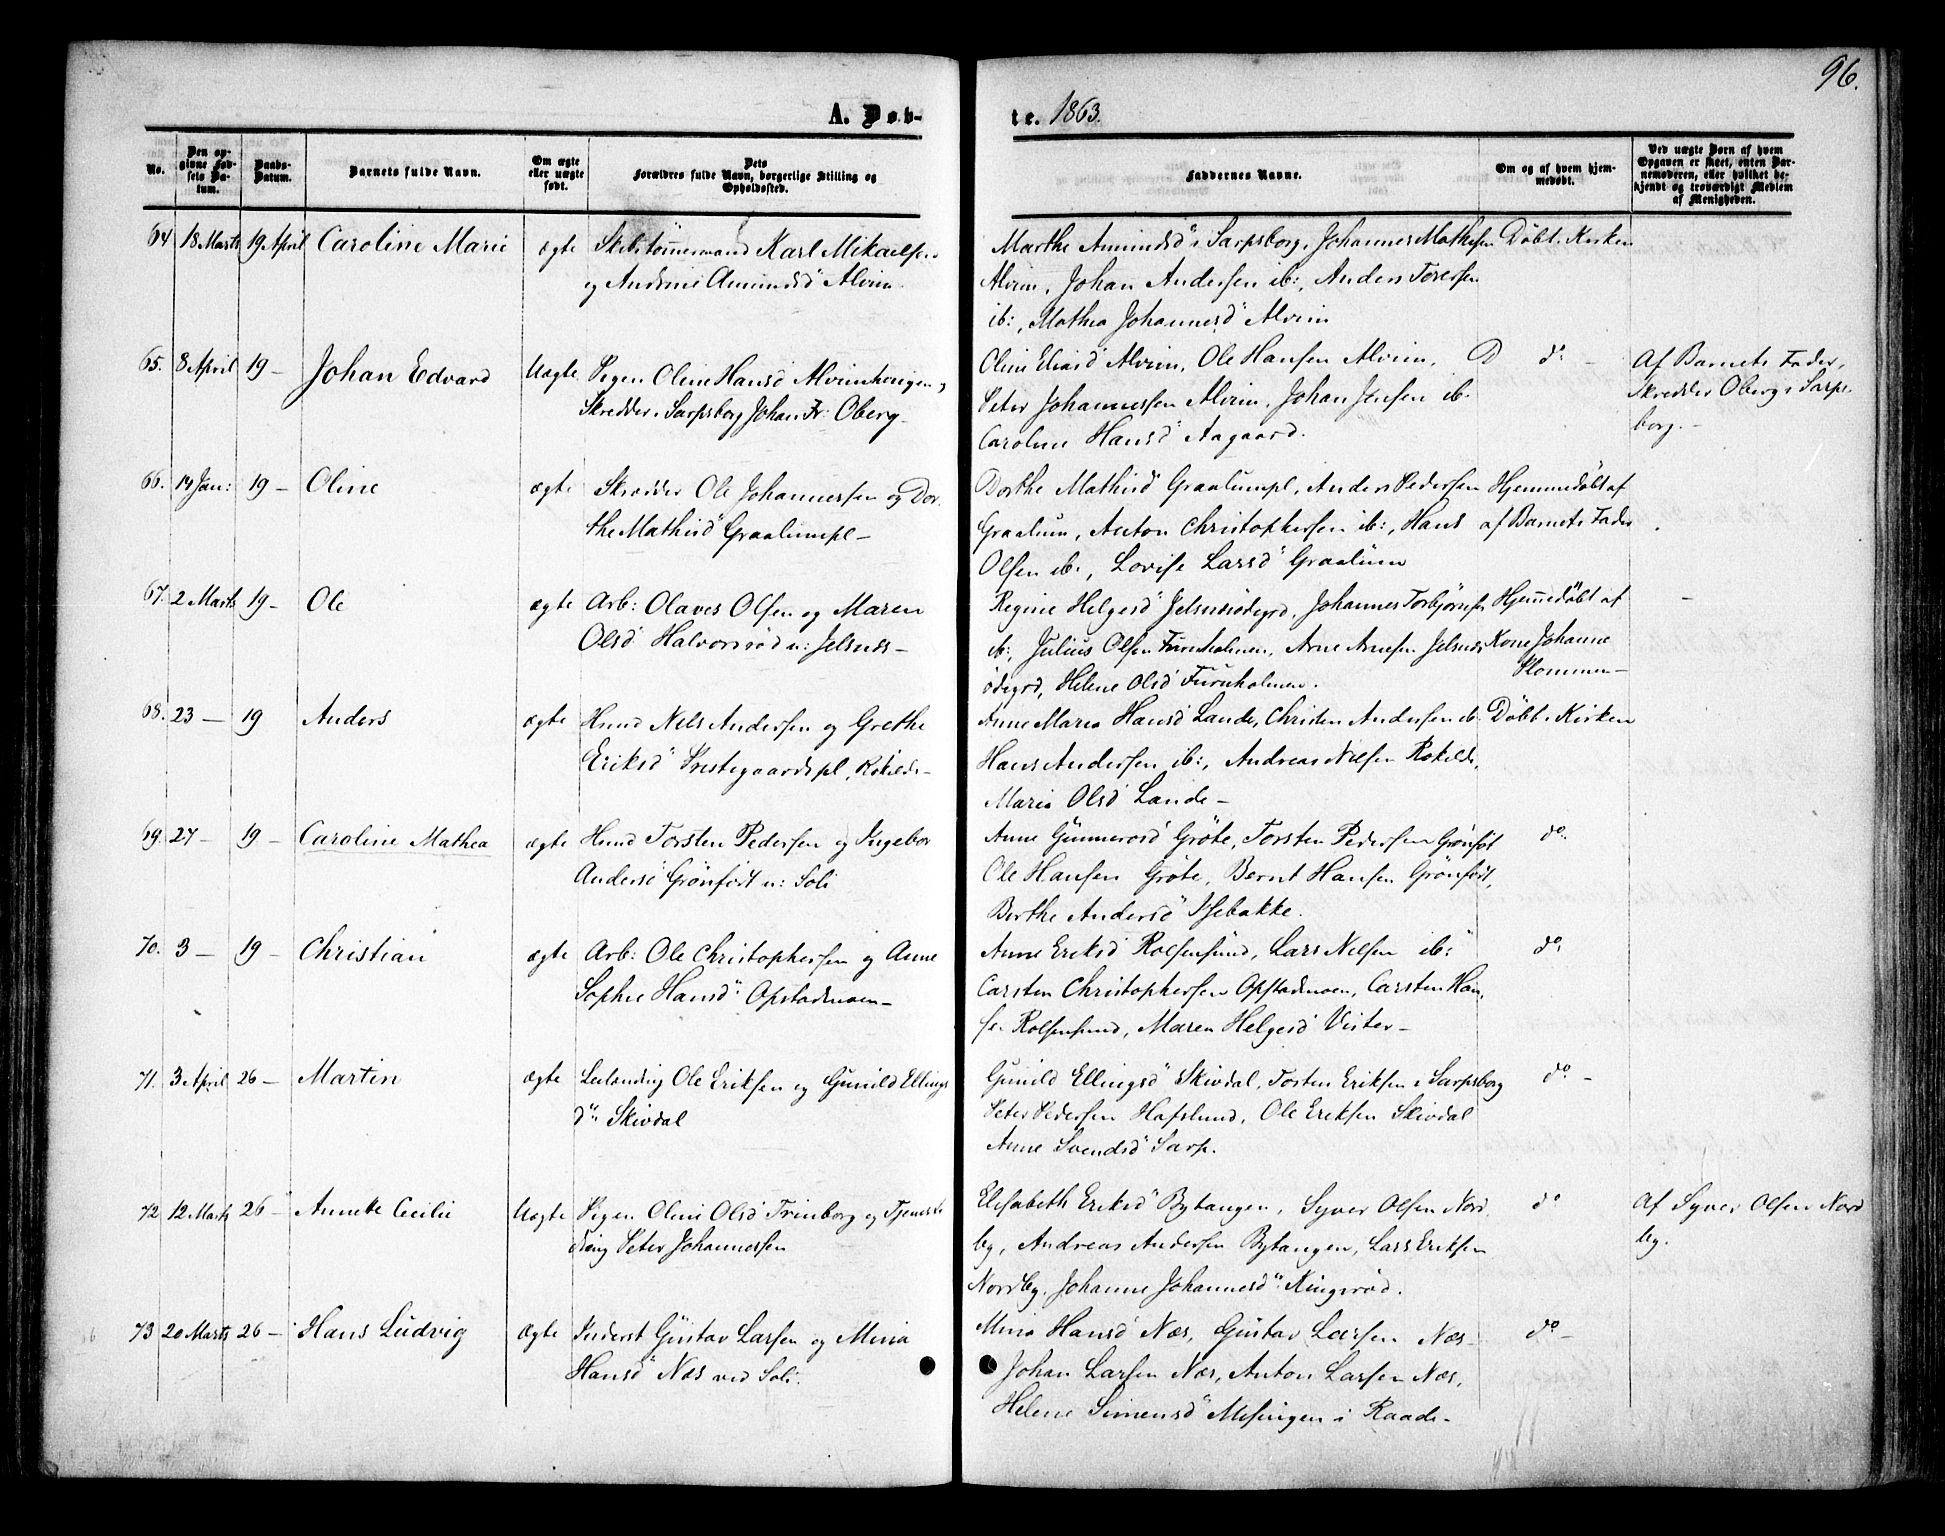 96.
A. Døb-
te. 1863.
No.
Den op-
givne Fød-
sels Da-
tum.
Daabs-
Datum.
Barnets fulde Navn.
Om ægte
eller uægte
født.
Dets
Forældres fulde Navn, borgerlige Stilling og
Opholdssted.
Faddernes Navne.
Om og af hvem hjem-
medøbt.
Ved uægte Børn af hvem
Opgaven er skeet, enten Bar-
nemoderen, eller hvilket be-
kjendt og troværdigt Medlem
af Menigheden.
64 18 Marts 19 April Caroline Marie ægte Skibstømmermand Karl Mikaelsen
og Andrine Amundsd" Alvim.
Marthe Amundsd" i Sarpsborg, Johannes Mathesen
Alvim, Johan Andersen ib:, Anders Toresen
ib:, Mathea Johannesd" Alvim
Døbt i Kirken
65. 8 April 19 - Johan Edvard Uægte Pigen Oline Hansd Alvimhaugen,
Skredder i Sarpsborg Johan Fr: Oberg-
Oline Eliasd" Alvim, Ole Hansen Alvim,
Peter Johannessen Alvim, Johan Jensen ib.
Caroline Hansd" Aagaard.
D do -
Af Barnets Fader,
Skredder Oberg i Sarps-
borg. -
66. 14 Jan: 19 - Oline ægte Skredder Ole Johannessen og Dor-
the Mathisd" Graalumpl-
Dorthe Mathisd" Graalumpl, Anders Pedersen
Graalum, Anton Christophersen ib:, Hans
Olsen ib:, Lovise Larsd" Graalum
Hjemmedøbt af
af Barnets Fader
67. 2 Marts 19 - Ole ægte Arb: Olaves Olsen og Maren
Olsd" Halvorsrød u: Jelsnæs-
Regine Helgesd" Jelsnæsødegrd, Johannes Torbjørnsen
ib:, Julius Olsen Furuholmen, Arne Arnesen Jelsnæs
ødegrd, Helene Olsd Furuholmen.
Hjemmedøbt af
Kone Johanne
Plommen-
68. 23 - 19 Anders ægte Hmd Nels Andersen og Grethe
Eriksd" Prestegaardspl, Rokilde-
Anne Maria Hansd Lande, Christen Andersen ib.
Hans Andersen ib:, Andreas Nilsen Rokilde,
Maria Olsd" Lande-
Døbt i Kirken
69. 27 - 19 - Caroline Mathea ægte Hmd Torsten Pedersen og Ingebor
Andersd Grønfødt u: Soli
Anne Gunnerød" Grøte, Torsten Pedersen Grønføt
Ole Hansen Grøte, Bernt Hansen Grønfødt,
Berthe Andersd" Isebakke.
do.
70. 3 - 19 - Christian ægte Arb: Ole Christophersen og Anne
Sophie Hansd" Opstadmoen-
Anne Eriksd Rolsensund, Lars Nilsen ib:
Carsten Christophersen Opstadmoen, Carsten Han-
sen Rolsensund, Maren Helgesd" Vister-
do.
71. 3 April 26 - Martin ægte Leilænding Ole Eriksen og Gunild Ellings
d" Skivdal
Gunild Ellingsd" Skivdal, Torsten Eriksen i Sarpsborg
Peter Pedersen Hafslund, Ole Eriksen Skivdal
Anne Svendsd" Sarp.
do -
72 12 Marts 26 - Annette Cecilie Uægte Pigen Oline Olsd" Trinborg og Tjeneste
dreng Peter Johannessen
Elisabeth Eriksd" Bytangen, Syver Olsen Nord
by, Andreas Andersen Bytangen, Lars Eriksen
Nordby, Johanne Johannesd" Ringsrød.
do
Af Syver Olsen Nord
by.
73 20 Marts 26 - Hans Ludvig Ægte Inderst Gustav Larsen og Mina
Hansd" Næs ved Soli.
Mina Hansd" Næs, Gustav Larsen Næs-
Johan Larsen Næs, Anton Larsen Næs,
Helene Simensd" Mesingen i Raade-
do -